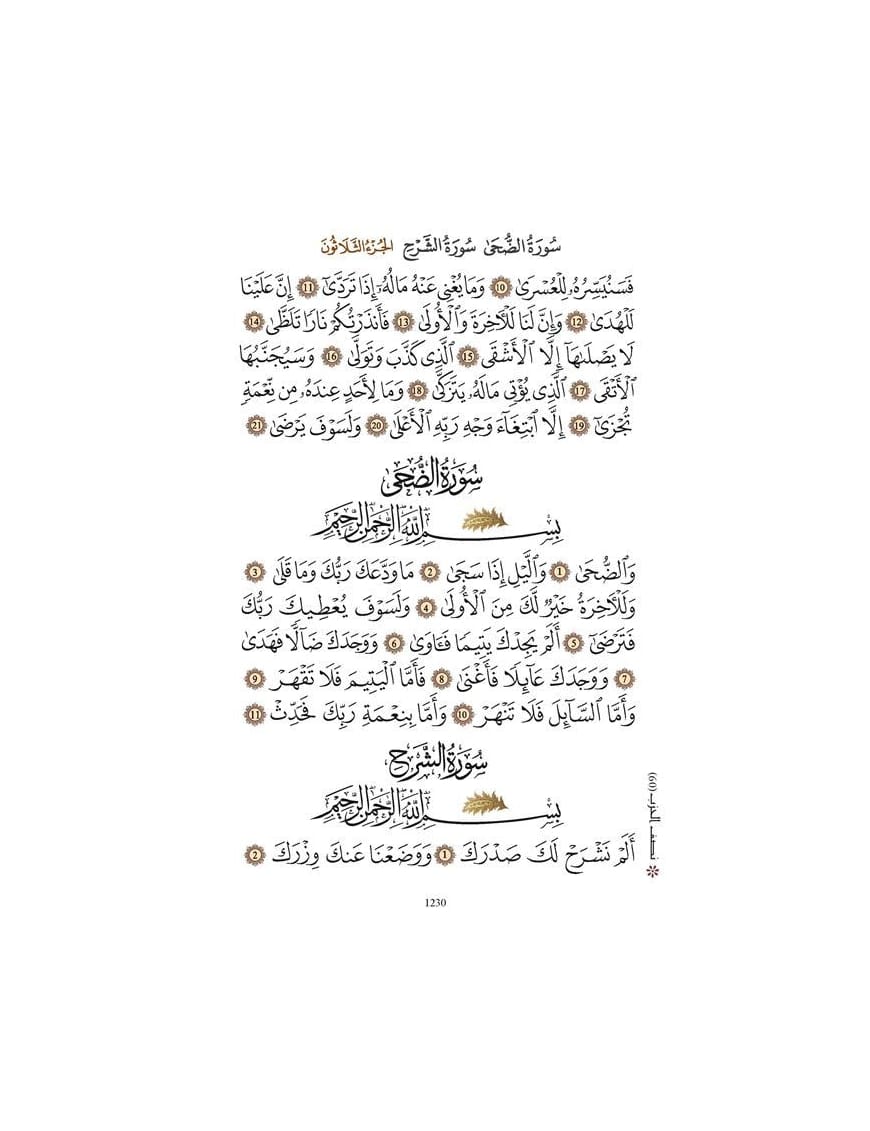 سُورَةُ الضُّحَىٰ سُورَةُ الشَّرْحِ الجُزْءُ الثَّلَاثُونَ
فَسَنُيَسِّرُهُۥ لِلْعُسْرَىٰ 10 وَمَا يُغْنِي عَنْهُ مَالُهُۥٓ إِذَا تَرَدَّىٰٓ 11 إِنَّ عَلَيْنَا
لَلْهُدَىٰ 12 وَإِنَّ لَنَا لَلْأَخِرَةَ وَٱلْأُولَىٰ 13 فَأَنذَرْتُكُمْ نَارًا تَلَظَّىٰ 14
لَا يَصْلَىٰهَآ إِلَّا ٱلْأَشْقَى 15 ٱلَّذِي كَذَّبَ وَتَوَلَّىٰ 16 وَسَيُجَنَّبُهَا
ٱلْأَتْقَى 17 ٱلَّذِي يُؤْتِي مَالَهُۥ يَتَزَكَّىٰ 18 وَمَا لِأَحَدٍ عِندَهُۥ مِن نِّعْمَةٍ
تُجْزَىٰٓ 19 إِلَّا ٱبْتِغَآءَ وَجْهِ رَبِّهِ ٱلْأَعْلَىٰ 20 وَلَسَوْفَ يَرْضَىٰ 21
سُورَةُ الضُّحَىٰ
بِسْمِ اللَّهِ الرَّحْمَٰنِ الرَّحِيمِ
وَٱلضُّحَىٰ 1 وَٱلَّيْلِ إِذَا سَجَىٰ 2 مَا وَدَّعَكَ رَبُّكَ وَمَا قَلَىٰ 3
وَلَلْأَخِرَةُ خَيْرٌ لَّكَ مِنَ ٱلْأُولَىٰ 4 وَلَسَوْفَ يُعْطِيكَ رَبُّكَ
فَتَرْضَىٰٓ 5 أَلَمْ يَجِدْكَ يَتِيمًا فَـَٔاوَىٰ 6 وَوَجَدَكَ ضَآلًّا فَهَدَىٰ
7 وَوَجَدَكَ عَآئِلًا فَأَغْنَىٰ 8 فَأَمَّا ٱلْيَتِيمَ فَلَا تَقْهَرْ 9
وَأَمَّا ٱلسَّآئِلَ فَلَا تَنْهَرْ 10 وَأَمَّا بِنِعْمَةِ رَبِّكَ فَحَدِّثْ 11
سُورَةُ الشَّرْحِ
بِسْمِ اللَّهِ الرَّحْمَٰنِ الرَّحِيمِ
أَلَمْ نَشْرَحْ لَكَ صَدْرَكَ 1 وَوَضَعْنَا عَنكَ وِزْرَكَ 2
نصف الحزب (60)
1230